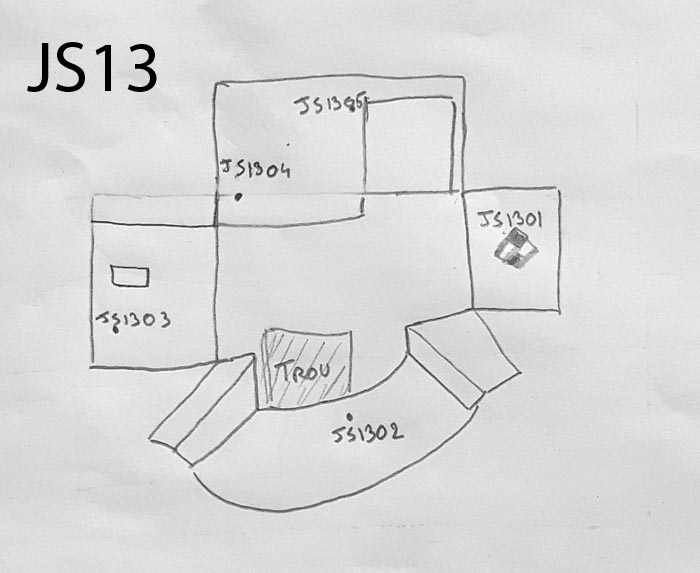 JS13
JS1305
JS1304
JS1301
JS1303
TROU
JS1302